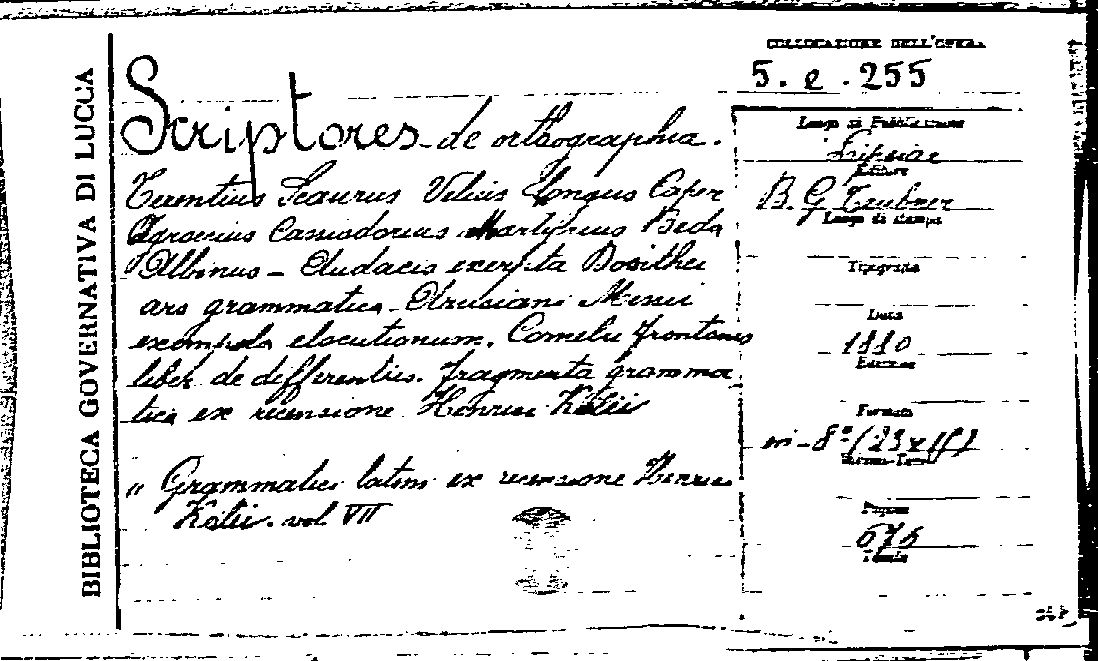 BIBLIOTECA GOVERNATIVA DI LUCCA
COLLOCAZIONE DELL'OPERA
5. e. 255
Scriptores de orthographia.
Terentius Scaurus Velius Longus Caper
Agroecius Cassiodorius Martyrius Beda
Albinus - Audacis excerpta Dosithei
ars grammatica - Arusiani Messii
exempla elocutionum. Cornelii Frontonis
liber de differentiis. Fragmenta gramma
tica ex recensione Henrici Keilii
" Grammatici latini ex recensione Henrici
Keilii. vol VII
Luogo di Pubblicazione
Lipsiae
Editore
B. G Teubner
Luogo di stampa
Tipografia
Data
1880
Edizione
Formato
in-8°
Pagine